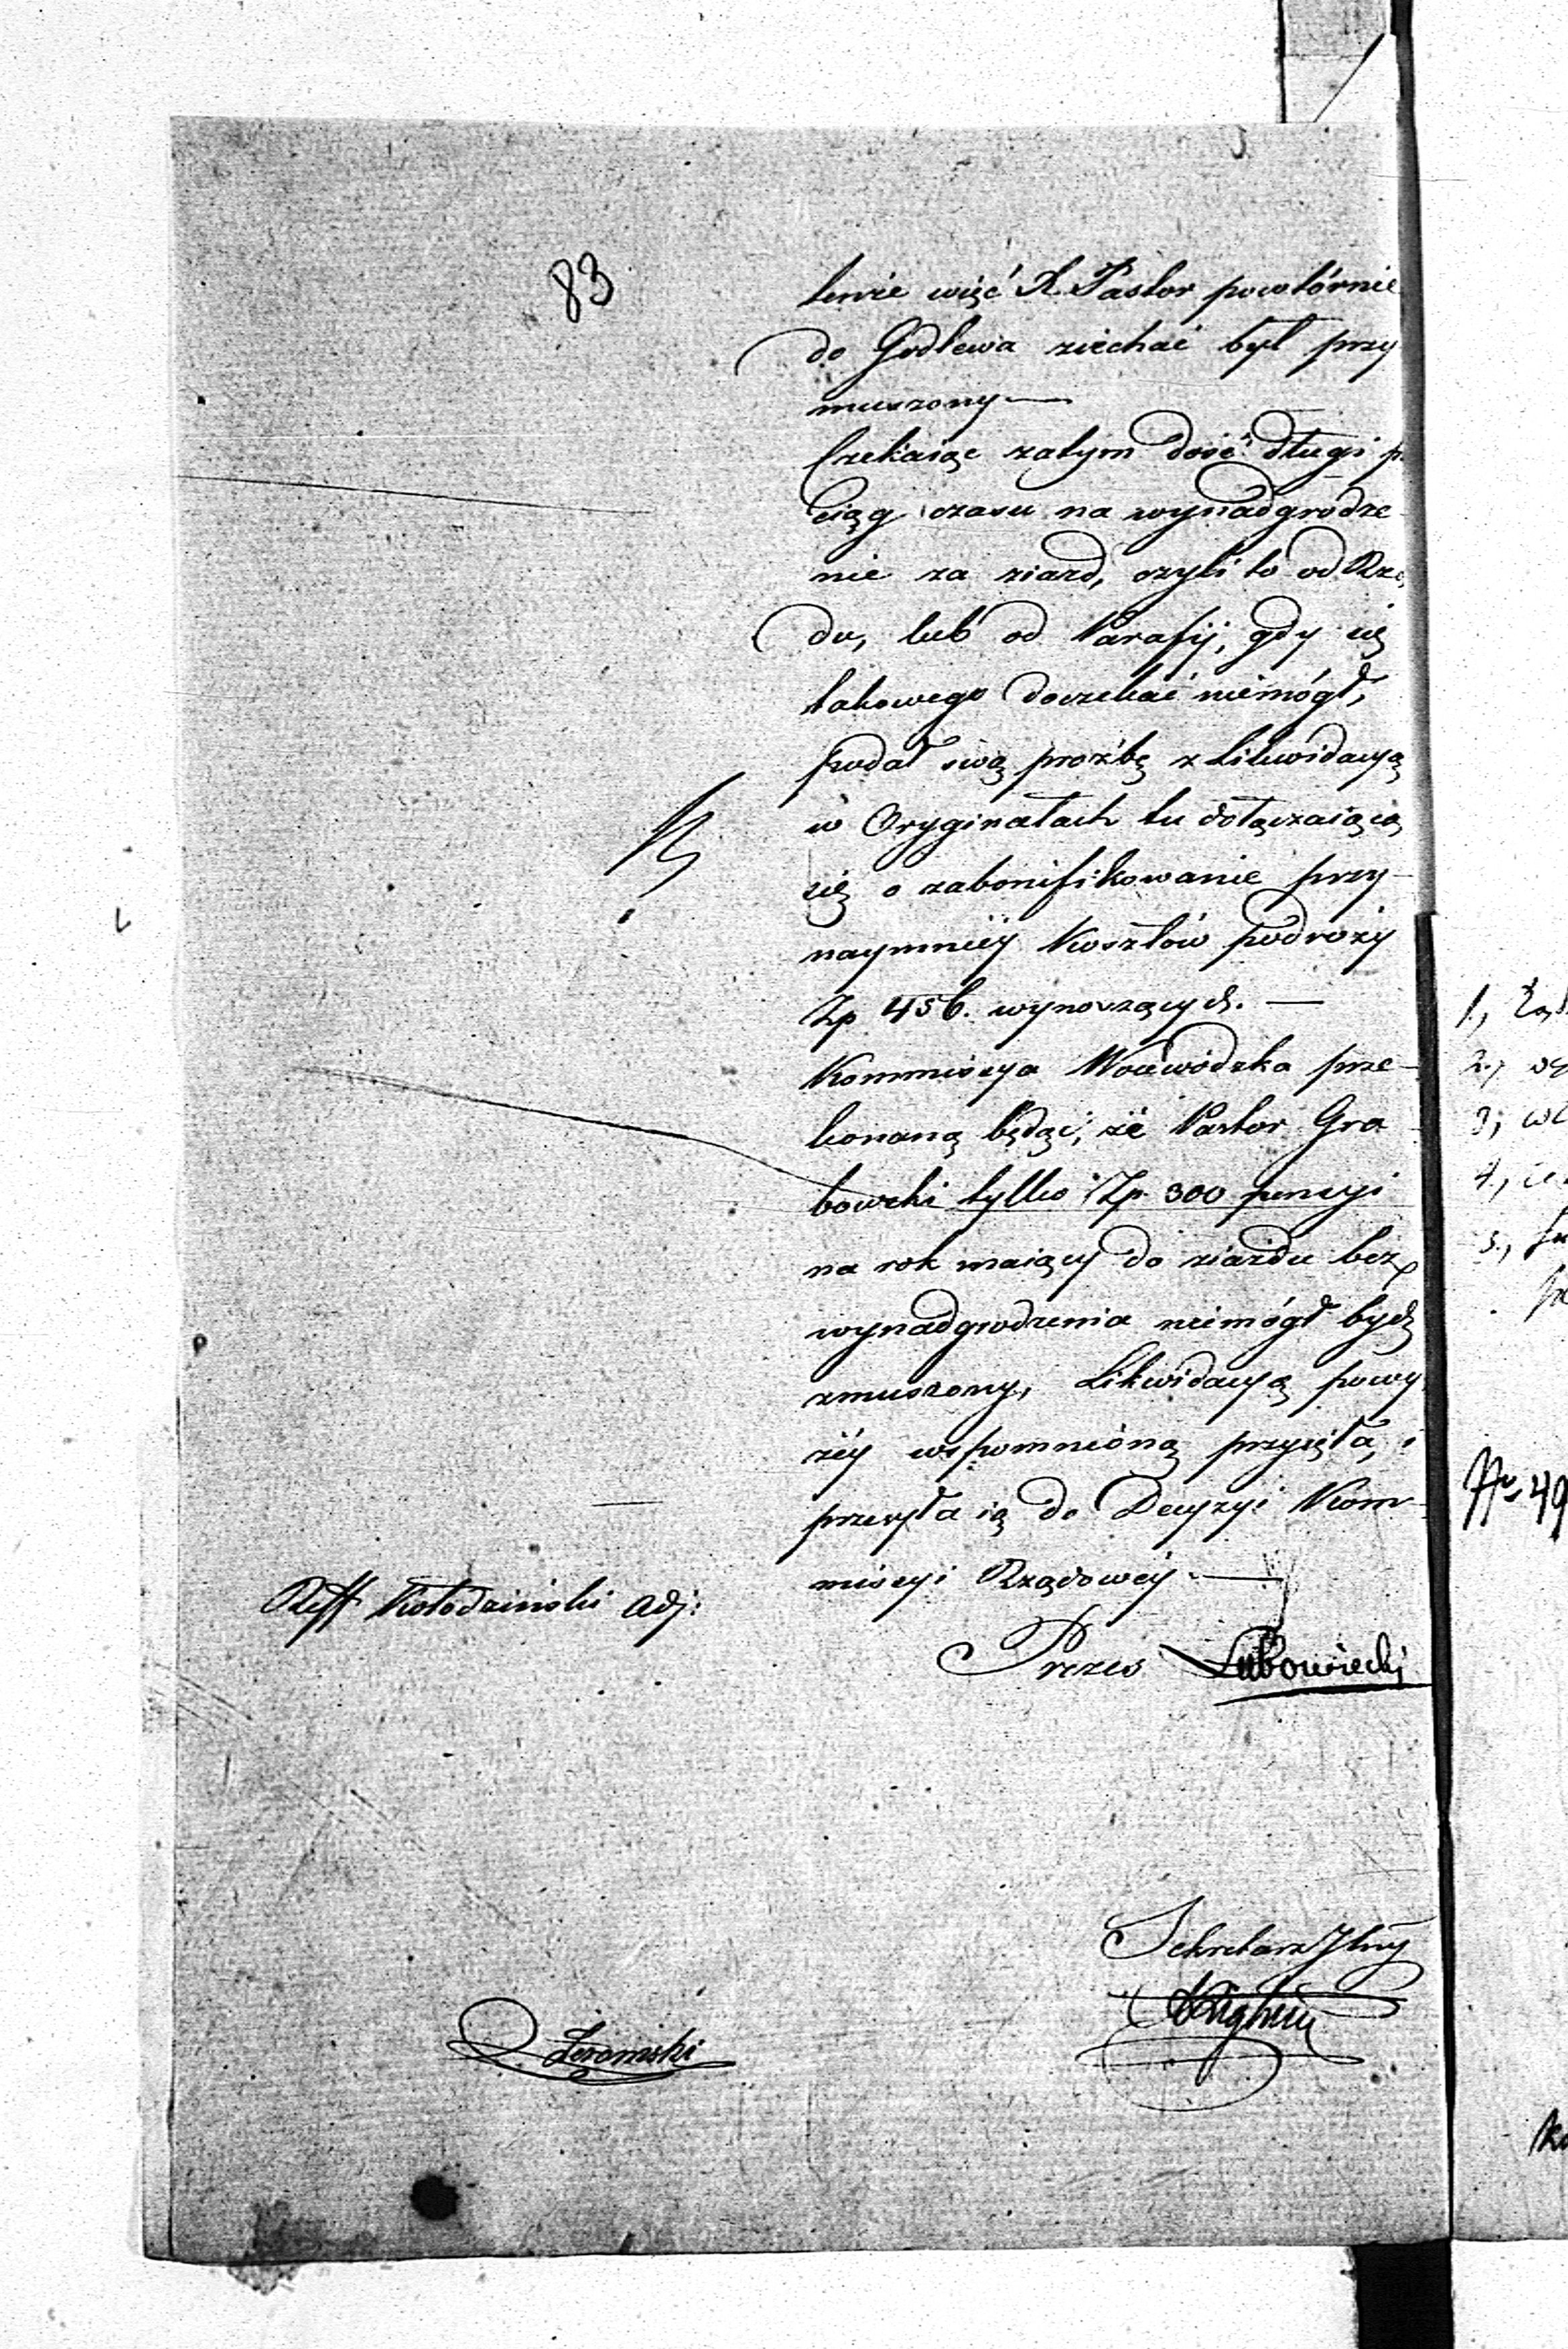 83
tenże więć X. Pastor powtórnie
do Godlewa ziechać był przy
muszony —
Czekaiąc zatym dość długi p
ciąg czasu na wynadgrodze
nie za ziazd, czyli to od Rzą
du, lub od Parafij, gdy się
takowego doczekać niemógł,
podał swą prożbę z Likwidacyą
w Oryginałach tu dołączaiącą
się o zabonifikowanie przy
naymniéy Kosztów podroży
Zp 456. wynoszących. —
Kommissya Woiewódzka prze-
konaną będąć, że Pastor Gra
bowski tylko Zp. 300 pensyi
na rok maiący do ziazdu bez
wynadgrodzenia niemógł bydź
zmuszony, Likwidacyą powy
żéy wspomnioną przyięła, i
przesyła ią do Decyzyi Kom-
missyi Rządowéy. —
Reff Kołodziński Adj:
Prezes Lubowiecki
Sekretarz Jlny
Żeromski
1.,
2.,
3,
4.,
5.,